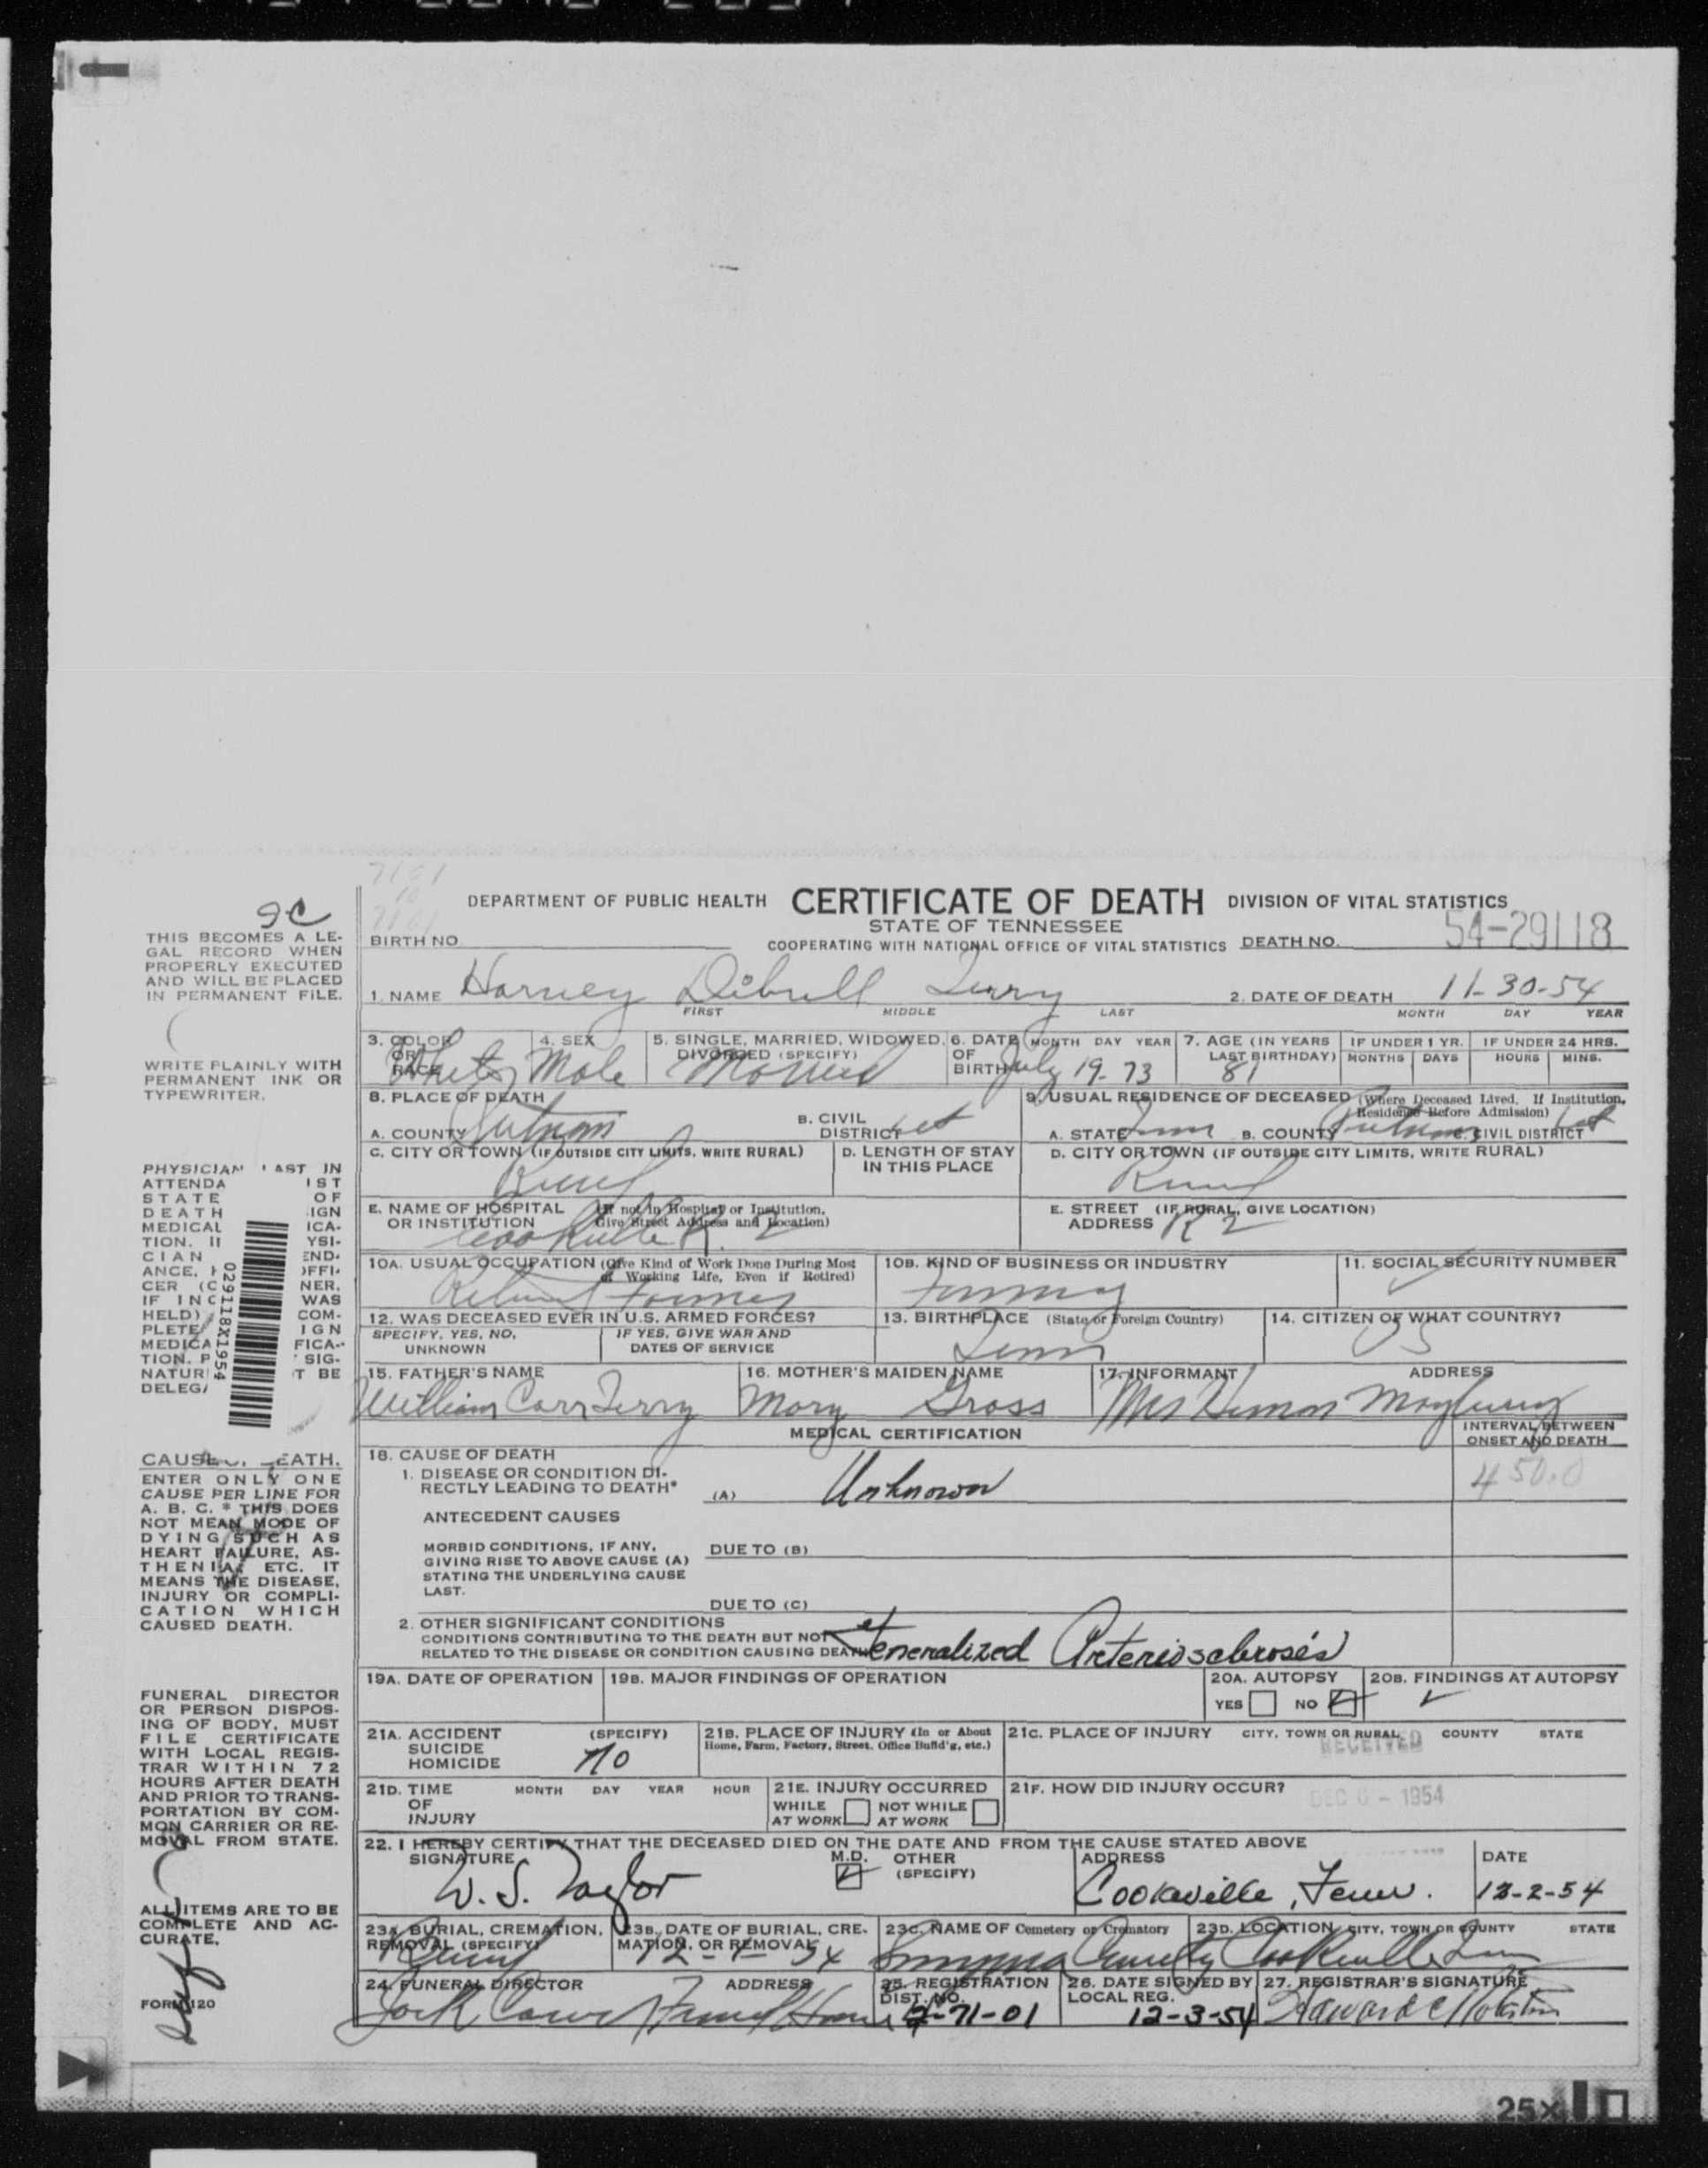 DEPARTMENT OF PUBLIC HEALTH CERTIFICATE OF DEATH DIVISION OF VITAL STATISTICS
STATE OF TENNESSEE
COOPERATING WITH NATIONAL OFFICE OF VITAL STATISTICS
BIRTH NO. DEATH NO. 54-29118
1. NAME Harvey Dibrell Terry 2. DATE OF DEATH 11-30-54
FIRST MIDDLE LAST MONTH DAY YEAR
3. COLOR OR RACE White 4. SEX Male 5. SINGLE, MARRIED, WIDOWED, DIVORCED (SPECIFY) Married 6. DATE OF BIRTH MONTH DAY YEAR July 19-73 7. AGE (IN YEARS LAST BIRTHDAY) 81 IF UNDER 1 YR. MONTHS DAYS IF UNDER 24 HRS. HOURS MINS.
8. PLACE OF DEATH
A. COUNTY Putnam B. CIVIL DISTRICT 1st
9. USUAL RESIDENCE OF DECEASED (Where Deceased Lived, If Institution, Residence Before Admission)
A. STATE Tenn B. COUNTY Putnam C. CIVIL DISTRICT 1st
C. CITY OR TOWN (IF OUTSIDE CITY LIMITS, WRITE RURAL) Rural D. LENGTH OF STAY IN THIS PLACE
D. CITY OR TOWN (IF OUTSIDE CITY LIMITS, WRITE RURAL) Rural
E. NAME OF HOSPITAL OR INSTITUTION (If not in Hospital or Institution, Give Street Address and Location) Cookville R. 2
E. STREET ADDRESS (IF RURAL, GIVE LOCATION) R 2
10A. USUAL OCCUPATION (Give Kind of Work Done During Most of Working Life, Even if Retired) Retired Farmer
10B. KIND OF BUSINESS OR INDUSTRY Farming
11. SOCIAL SECURITY NUMBER
12. WAS DECEASED EVER IN U.S. ARMED FORCES?
SPECIFY, YES, NO, UNKNOWN IF YES, GIVE WAR AND DATES OF SERVICE
13. BIRTHPLACE (State or Foreign Country) Tenn
14. CITIZEN OF WHAT COUNTRY? US
15. FATHER'S NAME William Carr Terry
16. MOTHER'S MAIDEN NAME Mary Gross
17. INFORMANT ADDRESS Mrs
MEDICAL CERTIFICATION
INTERVAL BETWEEN ONSET AND DEATH
18. CAUSE OF DEATH
1. DISEASE OR CONDITION DIRECTLY LEADING TO DEATH* (A) Unknown 450.0
ANTECEDENT CAUSES
MORBID CONDITIONS, IF ANY, GIVING RISE TO ABOVE CAUSE (A) STATING THE UNDERLYING CAUSE LAST.
DUE TO (B)
DUE TO (C)
2. OTHER SIGNIFICANT CONDITIONS
CONDITIONS CONTRIBUTING TO THE DEATH BUT NOT
RELATED TO THE DISEASE OR CONDITION CAUSING DEATH Generalized Arteriosclerosis
19A. DATE OF OPERATION 19B. MAJOR FINDINGS OF OPERATION 20A. AUTOPSY YES NO 20B. FINDINGS AT AUTOPSY
21A. ACCIDENT SUICIDE HOMICIDE (SPECIFY) no
21B. PLACE OF INJURY (In or About Home, Farm, Factory, Street, Office Build'g, etc.)
21C. PLACE OF INJURY CITY, TOWN OR RURAL COUNTY STATE
RECEIVED
21D. TIME OF INJURY MONTH DAY YEAR HOUR
21E. INJURY OCCURRED WHILE AT WORK NOT WHILE AT WORK
21F. HOW DID INJURY OCCUR?
DEC 6 - 1954
22. I HEREBY CERTIFY THAT THE DECEASED DIED ON THE DATE AND FROM THE CAUSE STATED ABOVE
SIGNATURE M.D. OTHER (SPECIFY) ADDRESS DATE
W. S. Taylor Cookeville, Tenn. 12-2-54
23A. BURIAL, CREMATION, REMOVAL (SPECIFY) Burial
23B. DATE OF BURIAL, CREMATION, OR REMOVAL 12-1-54
23C. NAME OF Cemetery or Crematory
23D. LOCATION CITY, TOWN OR COUNTY STATE Cookville Tenn
24. FUNERAL DIRECTOR ADDRESS Jack Funeral Home
25. REGISTRATION DIST. NO. 71-01
26. DATE SIGNED BY LOCAL REG. 12-3-54
27. REGISTRAR'S SIGNATURE
THIS BECOMES A LE-
GAL RECORD WHEN
PROPERLY EXECUTED
AND WILL BE PLACED
IN PERMANENT FILE.
WRITE PLAINLY WITH
PERMANENT INK OR
TYPEWRITER.
029118X1954
ENTER ONLY ONE
CAUSE PER LINE FOR
A. B. C. * THIS DOES
NOT MEAN MODE OF
DYING SUCH AS
HEART FAILURE, AS-
THENIA, ETC. IT
MEANS THE DISEASE,
INJURY OR COMPLI-
CATION WHICH
CAUSED DEATH.
FUNERAL DIRECTOR
OR PERSON DISPOS-
ING OF BODY, MUST
FILE CERTIFICATE
WITH LOCAL REGIS-
TRAR WITHIN 72
HOURS AFTER DEATH
AND PRIOR TO TRANS-
PORTATION BY COM-
MON CARRIER OR RE-
MOVAL FROM STATE.
ALL ITEMS ARE TO BE
COMPLETE AND AC-
CURATE.
FORM 120
25X